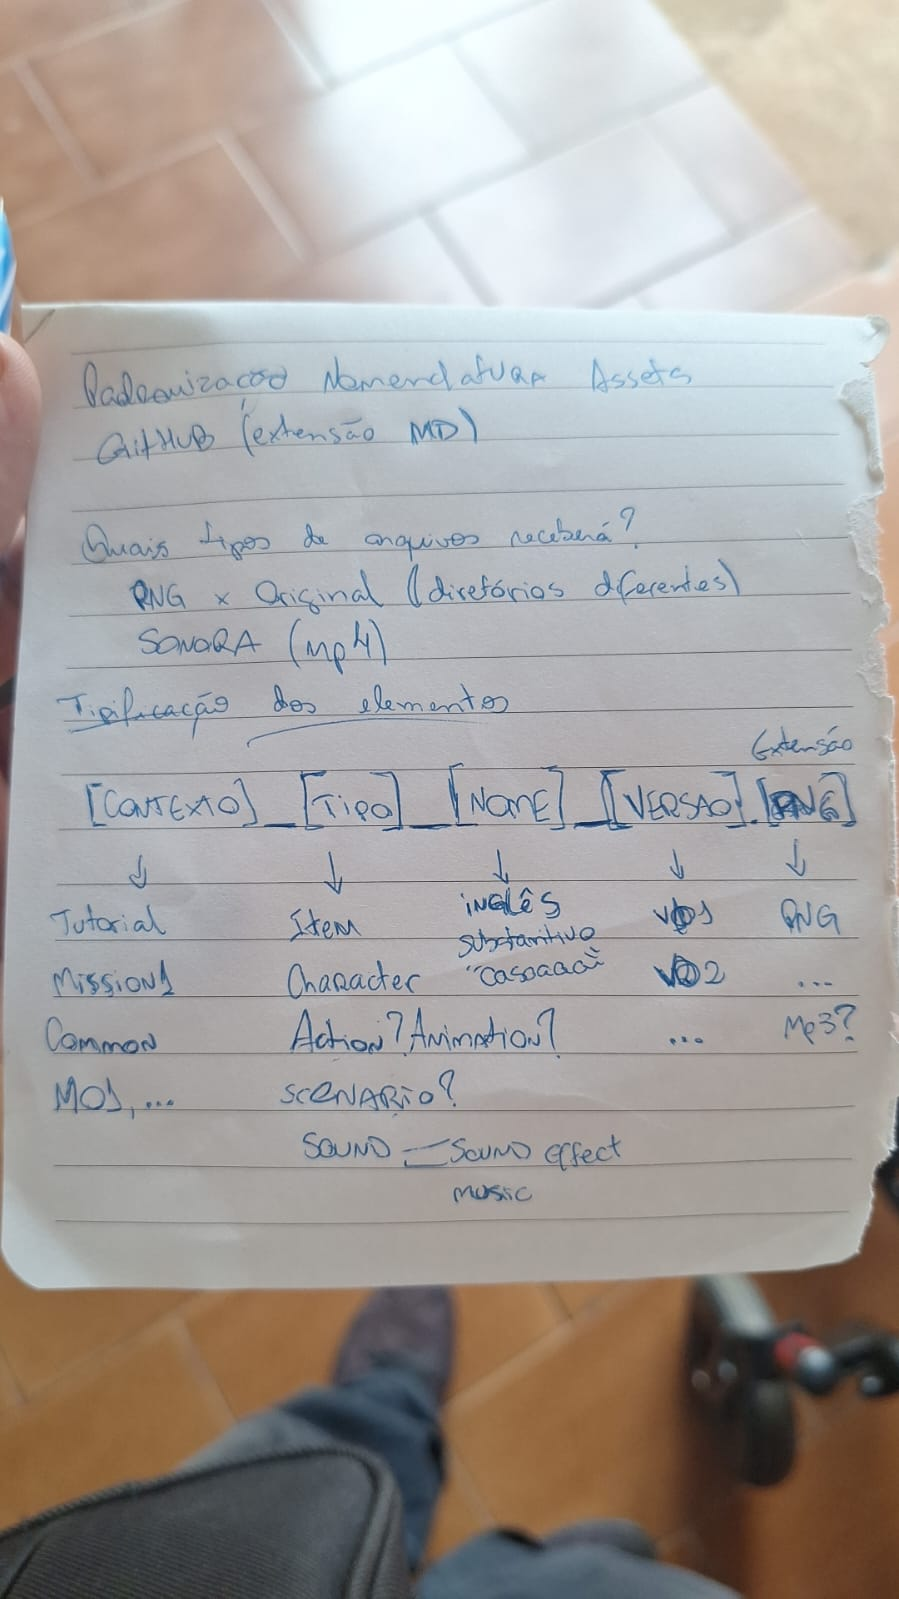 Padronização Nomenclatura Assets
GitHUB (extensão MD)
Quais tipos de arquivos receberá?
PNG x Original (diretórios diferentes)
SONORA (mp4)
Tipificação dos elementos
Extensão
[CONTEXTO]_[TIPO]_[NOME]_[VERSÃO].[PNG]
Tutorial Item inglês V01 PNG
substantivo
Mission1 Character V02 ...
Common Action? Animation? ... Mp3?
M01, ... SCENARIO?
SOUND Sound effect
music